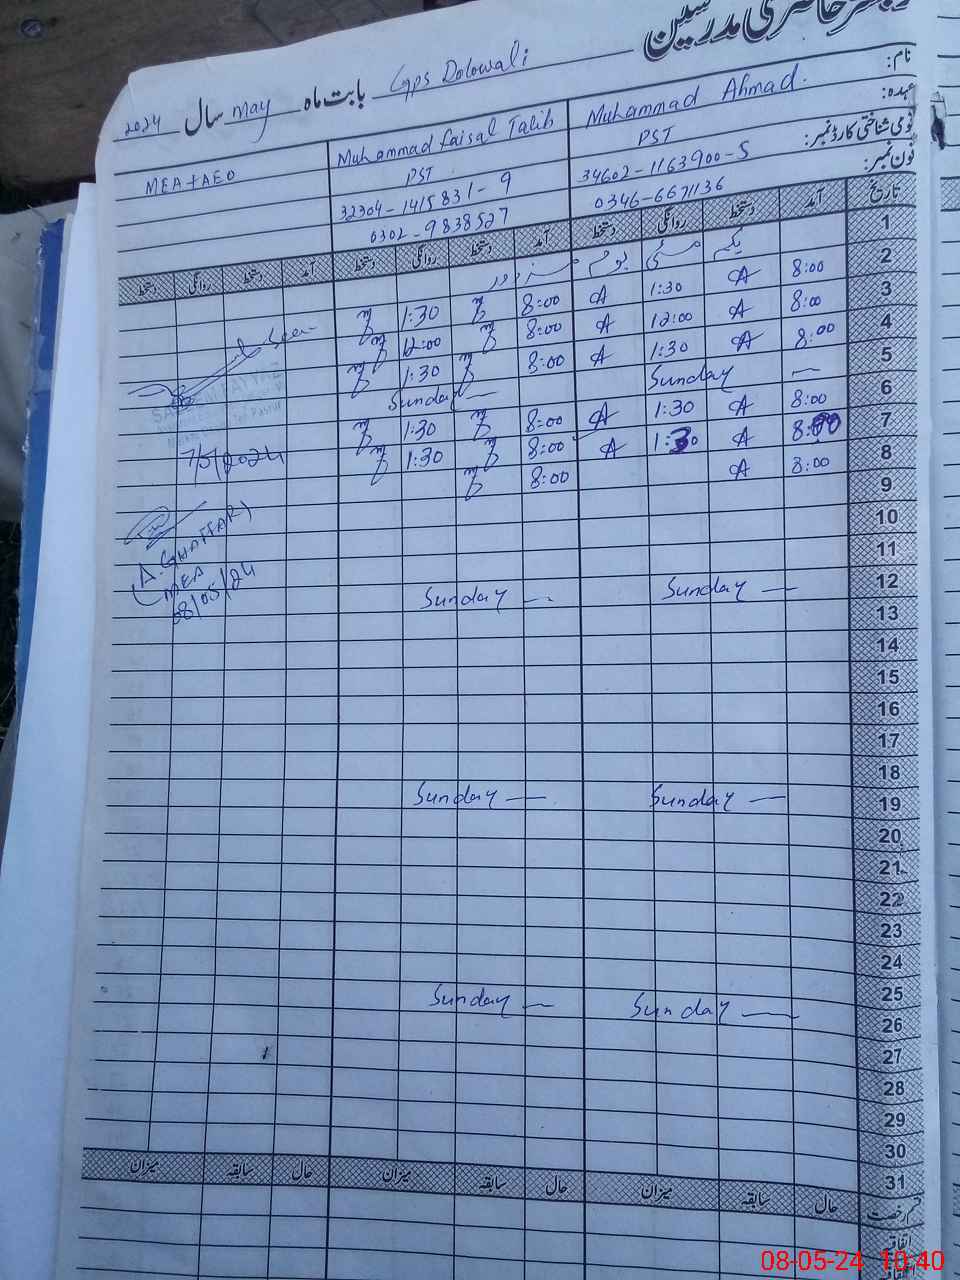 رجسٹر حاضری مدرسین
2024 سال May بابت ماہ Gps Dolowali
نام: Muhammad Ahmad. Muhammad Faisal Talib
عہدہ: PST PST MEA + AEO
قومی شناختی کارڈ نمبر: 34602-1163900-5 32304-1415831-9
فون نمبر: 0346-6671136 0302-9838527
تاریخ آمد دستخط روانگی دستخط آمد دستخط روانگی دستخط آمد دستخط روانگی دستخط
1 یکم مئی یوم مزدور
2 8:00 A 1:30 A 8:00 1:30
3 8:00 A 12:00 A 8:00 12:00
4 8:00 A 1:30 A 8:00 1:30
5 Sunday — Sunday —
6 8:00 A 1:30 A 8:00 1:30
7 8:00 A 1:30 A 8:00 1:30
8 8:00 A 8:00
9
10
11
12 Sunday — Sunday —
13
14
15
16
17
18
19 Sunday — Sunday —
20
21
22
23
24
25
26 Sunday — Sunday —
27
28
29
30
31
Seen
7/5/2024
(A. GHAFFAR)
MEA
08/05/24
قسم رخصت حال سابقہ میزان حال سابقہ میزان حال سابقہ میزان
اتفاقیہ
08-05-24 10:40